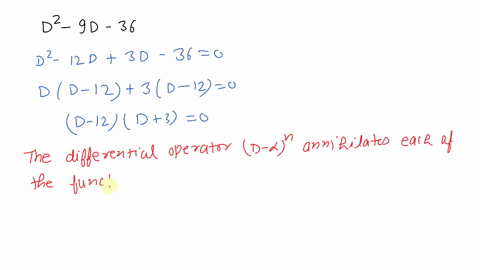 D² - 9D - 36
D² - 12D + 3D - 36 = 0
D (D-12) + 3 (D-12) = 0
(D-12) (D+3) = 0
The differential operator (D-α)ⁿ annihilates each of
the func